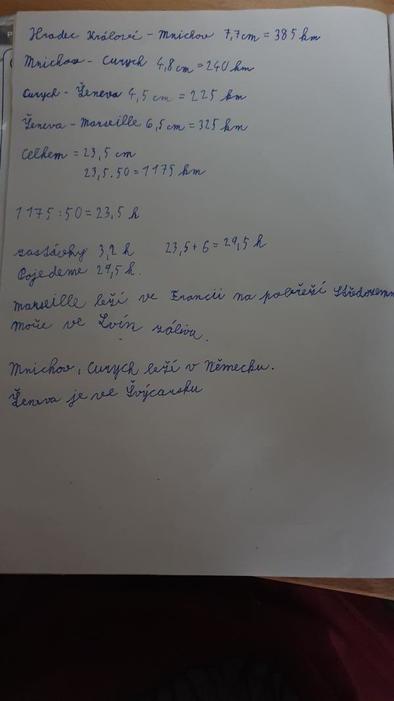 Hradec Králové - Mnichov 7,7cm = 385 km
Mnichov - Curych 4,8 cm = 240 km
Curych - Ženeva 4,5 cm = 225 km
Ženeva - Marseille 6,5 cm = 325 km
Celkem = 23,5 cm
23,5 . 50 = 1175 km
1175 : 50 = 23,5 h
zastávky 3,2 h 23,5 + 6 = 29,5 h
Pojedeme 29,5 h.
Marseille leží ve Francii na pobřeží Středozem
moře ve Lvín zálivu.
Mnichov, Curych leží v Německu.
Ženeva je ve Švýcarsku